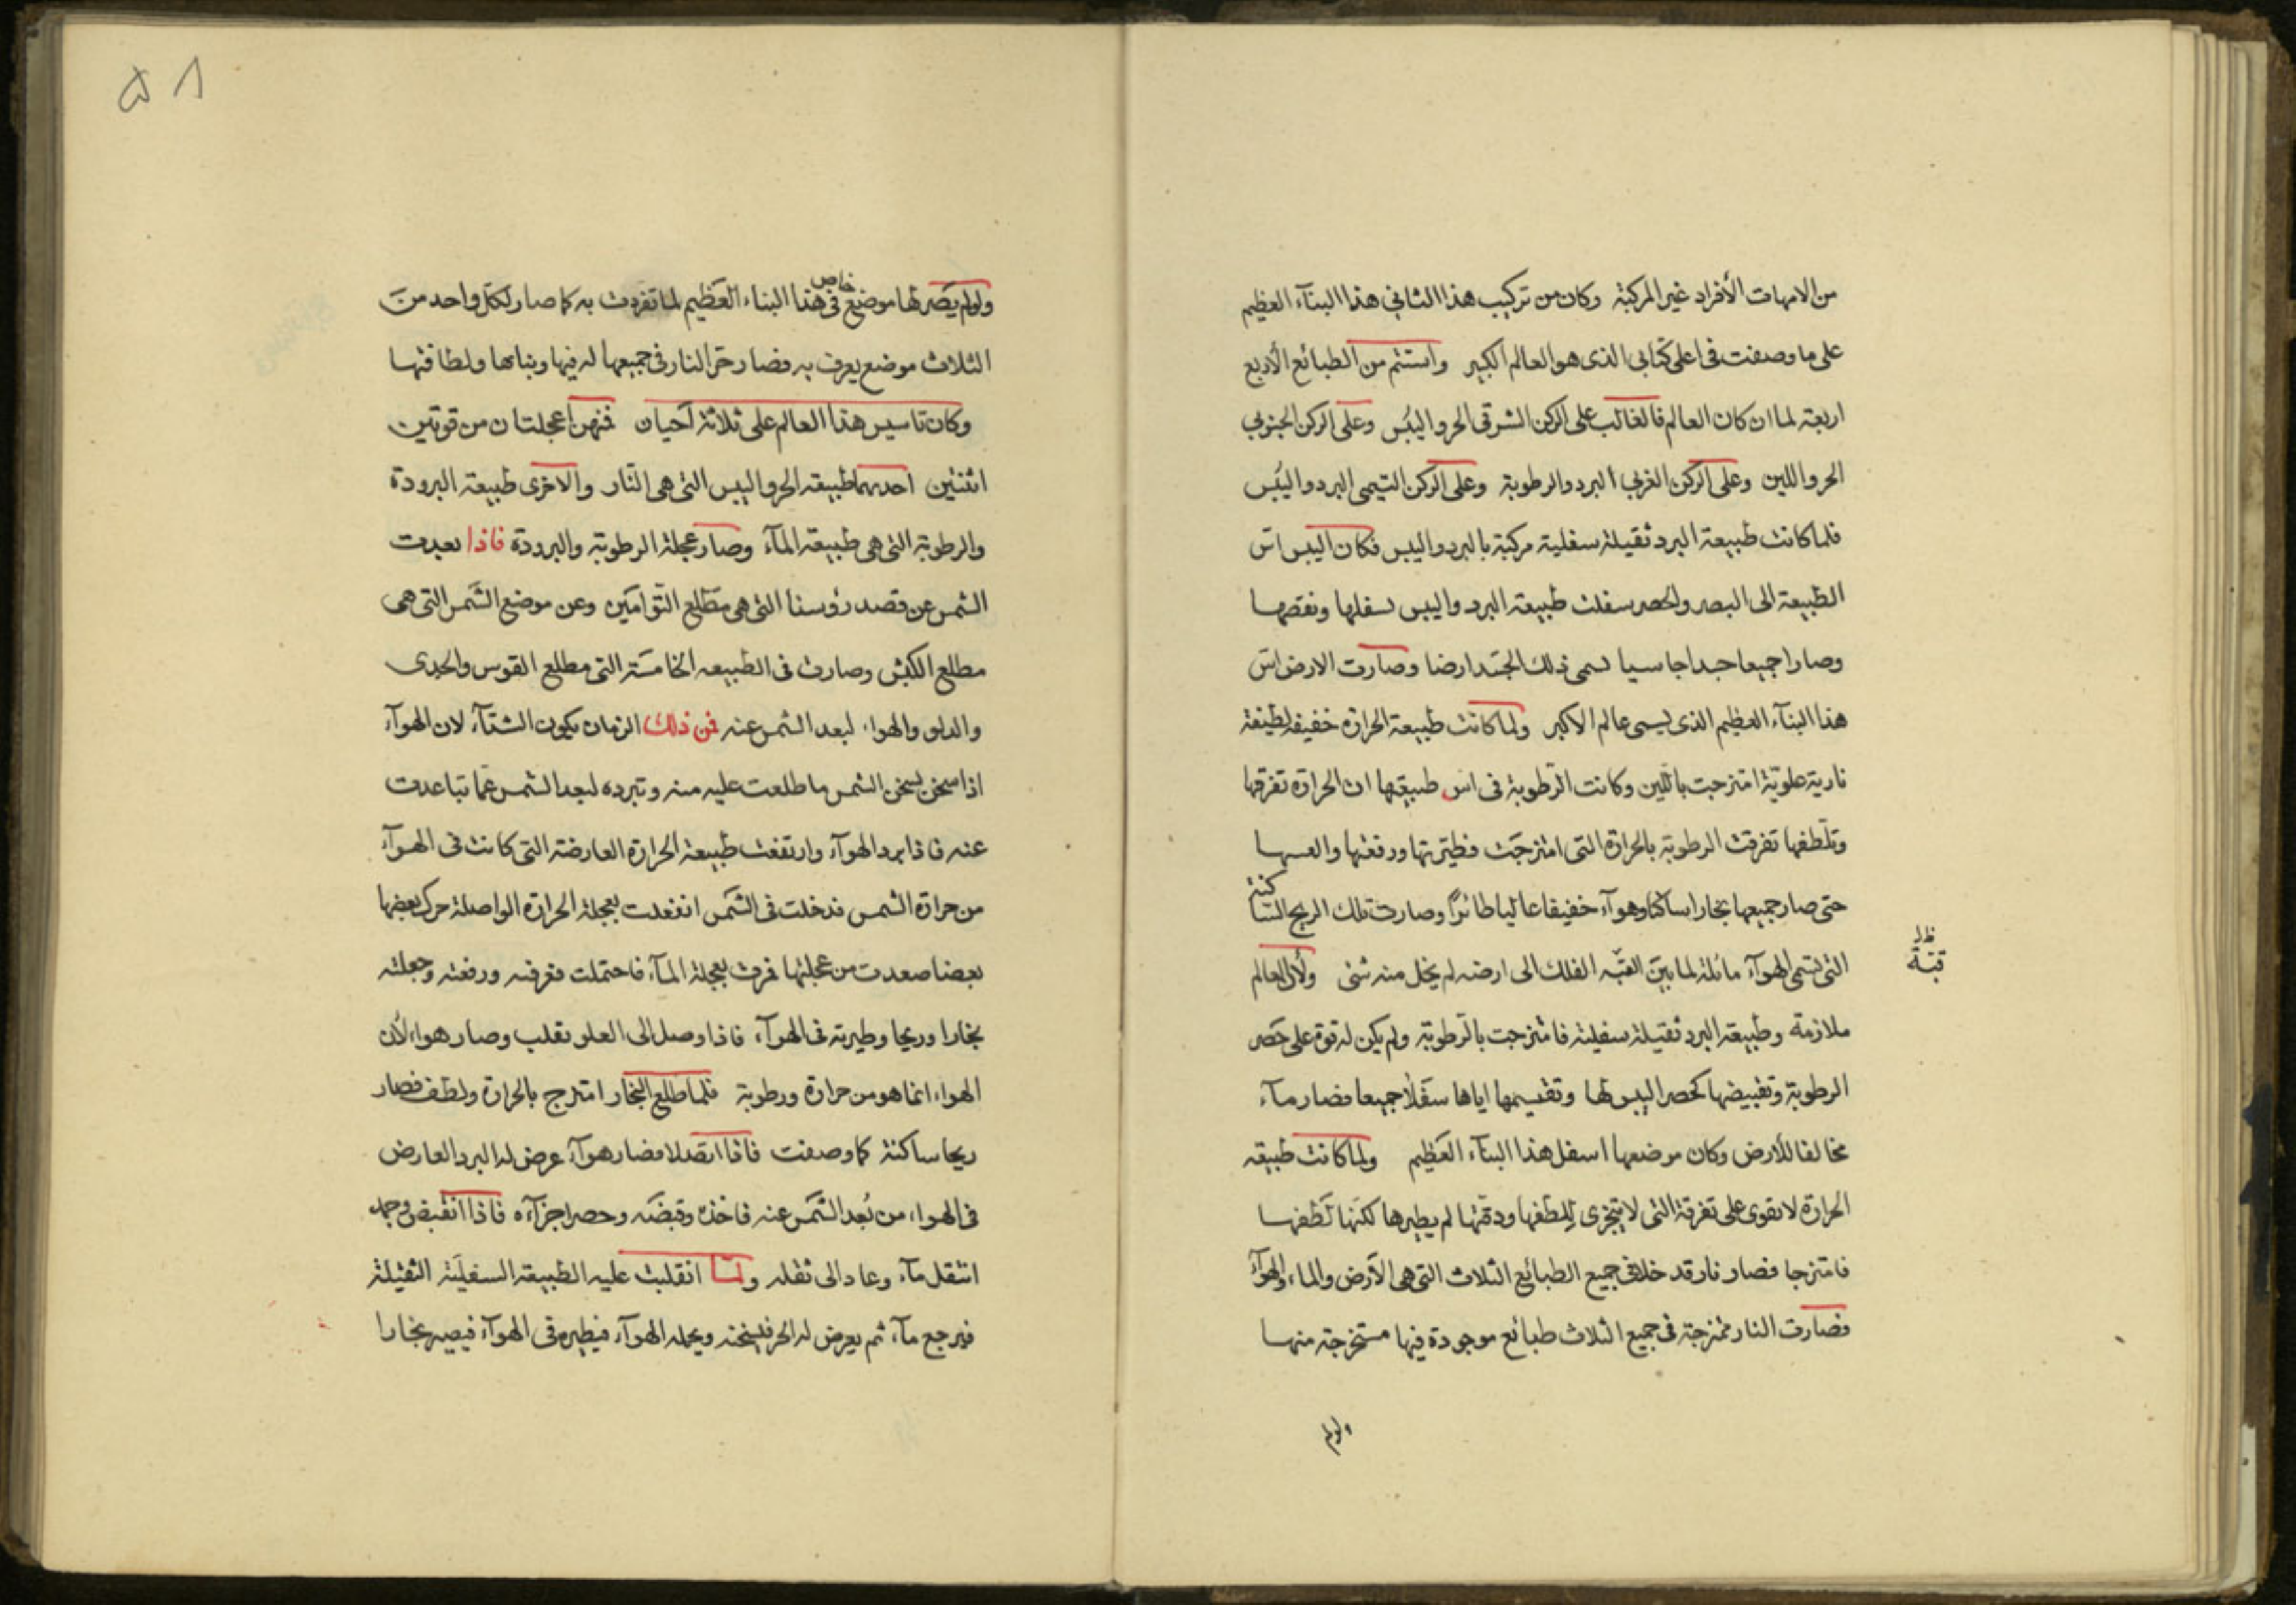 من الامهات الأفراد غير المركبة وكان من تركيب هذا الثاني هذا البنآء العظيم
على ما وصفت في اعلى كتابي الذى هو العالم الكبير واستتم من الطبائع الأربع
اربعة لما ان كان العالم فالغالب على الركن الشرقى الحر واليبس وعلى الركن الجنوبي
الحر واللين وعلى الركن الغربي البرد والرطوبة وعلى الركن التيمى البرد واليبس
فلما كانت طبيعة البرد ثقيلة سفلية مركبة بالبرد واليبس فكان اليبس اس
الطبيعة الى البصر والحصر سفلت طبيعة البرد واليبس لسفلها ونقصها
وصارا جميعا جسدا جاسيا لسمى ذلك الجسد ارضا وصارت الارض اس
هذا البنآء العظيم الذى يسمى عالم الاكبر ولما كانت طبيعة الحرارة خفيفة لطيفة
نارية علوية امتزجت باللين وكانت الرطوبة في اس طبيعتها ان الحرارة تفرقها
وتلطفها تفرقت الرطوبة بالحرارة التى امتزجت فطيرتها ورفعتها
حتى صار جميعها بخارا ساكنا وهوآء خفيفا عاليا طائرا وصارت تلك الريح الساكنة
التى تسمى الهوآء مائلة لما بين القبه الفلك الى ارضه لم يخل منه شئ ولأن العالم
ظ قبة
ملازمة وطبيعة البرد ثقيلة سفلية فامتزجت بالرطوبة ولم يكن له قوة على حصر
الرطوبة وتقبيضها كحصر اليبس لها وتقسيمها اياها سفلا جميعا فصار مآء
مخالفا للأرض وكان موضعها اسفل هذا البنآء العظيم ولما كانت طبيعة
الحرارة لا تقوى على تفرقة التى لا يتجزى للطفها ودقتها لم يطيرها لكنها لطفها
فامتزجا فصار نار قد خلاف جميع الطبائع الثلاث التى هى الأرض والماء والهوآء
فصارت النار ممتزجة في جميع الثلاث طبائع موجودة فيها مستخرجة منها
ولولم
٥٨
ولولم يصر لها موضع خاص في هذا البناء العظيم لما تفردت به كما صار لكل واحد من
الثلاث موضع يعرف به فصار حر النار في جميعها له فيها وبنابها ولطافتها
وكان تاسيس هذا العالم على ثلاثة احيان فمنهن عجلتان من قوتين
اثنتين احدهما طبيعة الحر واليبس التى هى النار والاخرى طبيعة البرودة
والرطوبة التى هى طبيعة المآء وصار عجلة الرطوبة والبرودة فاذا بعدت
الشمس عن قصد رؤسنا التى هى مطلع التوامين وعن موضع الشمس التى هى
مطلع الكبش وصارت في الطبيعه الخامسة التى مطلع القوس والجدى
والدلو والهوا لبعد الشمس عنه فمن ذلك الزمان يكون الشتآء لان الهوآء
اذا سخن يسخن الشمس ما طلعت عليه منه وتبرده لبعد الشمس عما تباعدت
عنه فاذا برد الهوآء وارتفعت طبيعة الحرارة العارضة التى كانت في الهوآء
من حرارة الشمس فدخلت في الشمس انفعدت بعجلة الحرارة الواصلة حرك بعضها
بعضا صعدت من عجلتها فرت بعجلة المآء فاحتملت فرفته ورفعته وجعلته
بخارا وريحا وطيرته في الهوآء فاذا وصل الى العلو تقلب وصار هواء لأن
الهواء انما هو من حرارة ورطوبة فلما طلع البخار امتزج بالحرارة ولطف فصار
ريحا ساكنة كما وصفت فاذا اتصلا فصار هوآء عرض له البرد العارض
في الهواء من بعد الشمس عنه فاخذه وقبضه وحصر اجزآءه فاذا انقبض وجمد
انتقل مآء وعاد الى ثقله ولما انقلبت عليه الطبيعة السفلية الثقيلة
فيرجع مآء ثم يعرض له الحر فيسخنه ويحمله الهوآء فيطيره في الهوآء فيصير بخارا